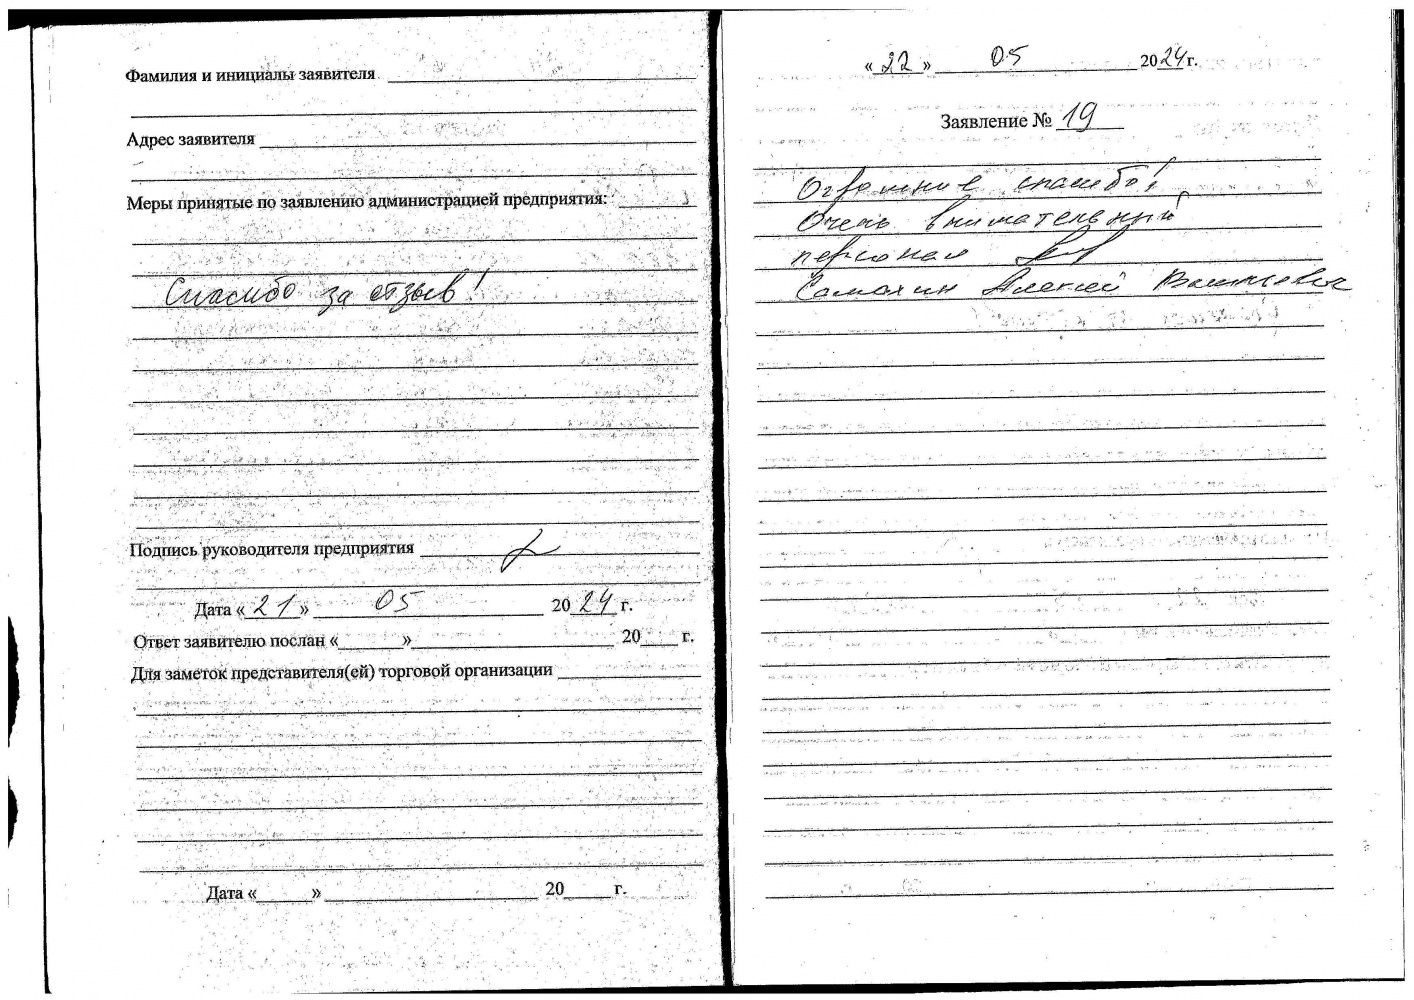 Фамилия и инициалы заявителя
Адрес заявителя
Меры принятые по заявлению администрацией предприятия:
Спасибо за отзыв!
Подпись руководителя предприятия
Дата «21» 05 2024 г.
Ответ заявителю послан «    » 20    г.
Для заметок представителя(ей) торговой организации
Дата «    » 20    г.
«22» 05 2024 г.
Заявление № 19
Огромное спасибо!
Очень внимательный
персонал
Самохин Алексей